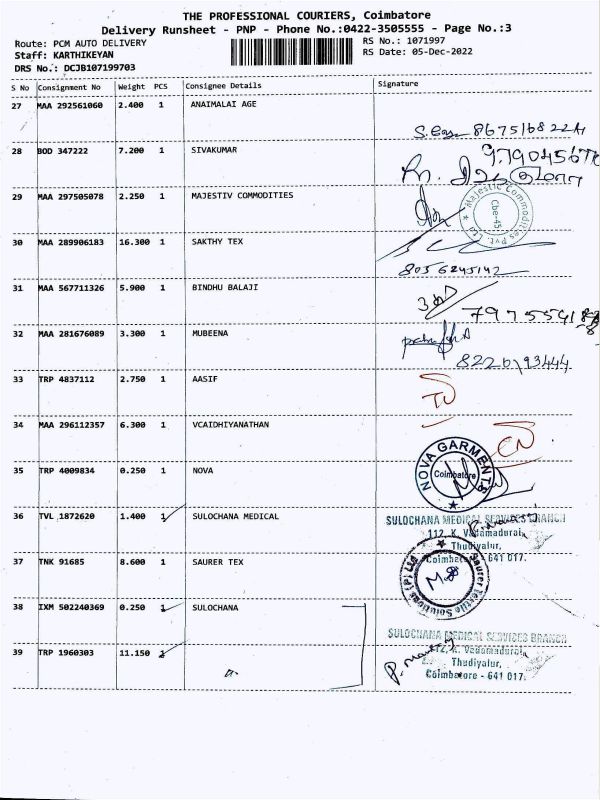 THE PROFESSIONAL COURIERS, Coimbatore
Delivery Runsheet - PNP - Phone No.:0422-3505555 - Page No.:3
Route: PCM AUTO DELIVERY
RS No.: 1071997
Staff: KARTHIKEYAN
RS Date: 05-Dec-2022
DRS No.: DCJB107199703
S No Consignment No Weight PCS Consignee Details Signature
27 MAA 292561060 2.400 1 ANAIMALAI AGE
28 BOD 347222 7.200 1 SIVAKUMAR
29 MAA 297505078 2.250 1 MAJESTIV COMMODITIES
Majestic Commodities Pvt. Ltd
Cbe-45
30 MAA 289906183 16.300 1 SAKTHY TEX
8056245142
31 MAA 567711326 5.900 1 BINDHU BALAJI
32 MAA 281676089 3.300 1 MUBEENA
33 TRP 4837112 2.750 1 AASIF
34 MAA 296112357 6.300 1 VCAIDHIYANATHAN
35 TRP 4009834 0.250 1 NOVA
NOVA GARMENTS
Coimbatore
36 TVL 1872620 1.400 1 SULOCHANA MEDICAL
SULOCHANA MEDICAL SERVICES BRANCH
112, K. Vadamadurai,
Thudiyalur,
Coimbatore - 641 017.
37 TNK 91685 8.600 1 SAURER TEX
Saurer Textile Solutions (P) Ltd
38 IXM 502240369 0.250 1 SULOCHANA
39 TRP 1960303 11.150 1
SULOCHANA MEDICAL SERVICES BRANCH
112, K. Vadamadurai,
Thudiyalur,
Coimbatore - 641 017.